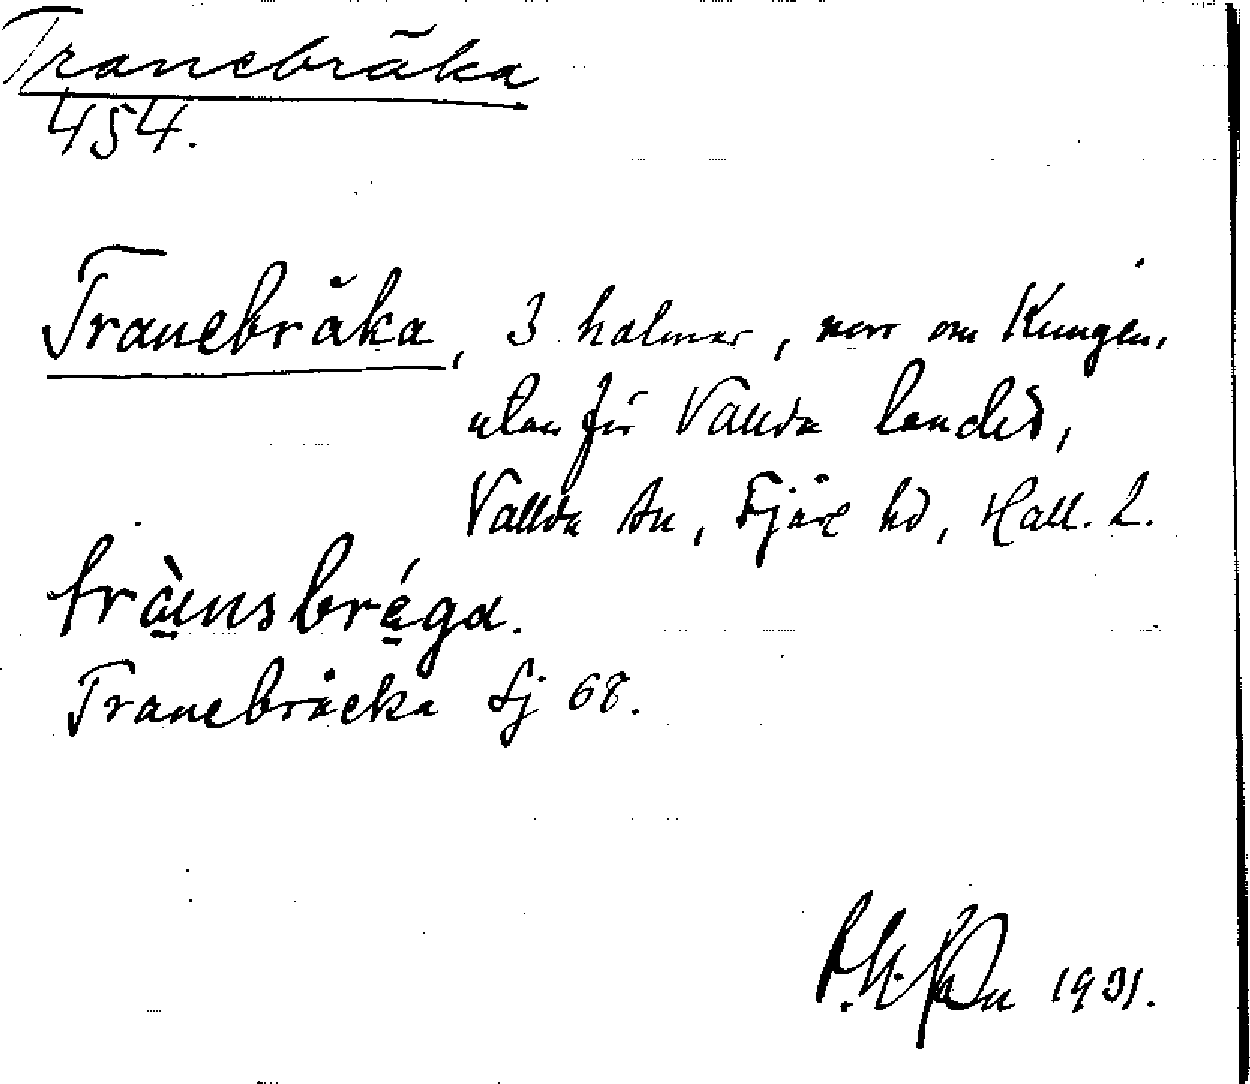 Tranebråka
454.
Tranebråka, 3 holmar, norr om Kungen,
utanför Vallda landet,
Vallda sn, Fjäre hd, Hall. L.
trànsbréga.
Tranebråcka Sj 68.
1931.